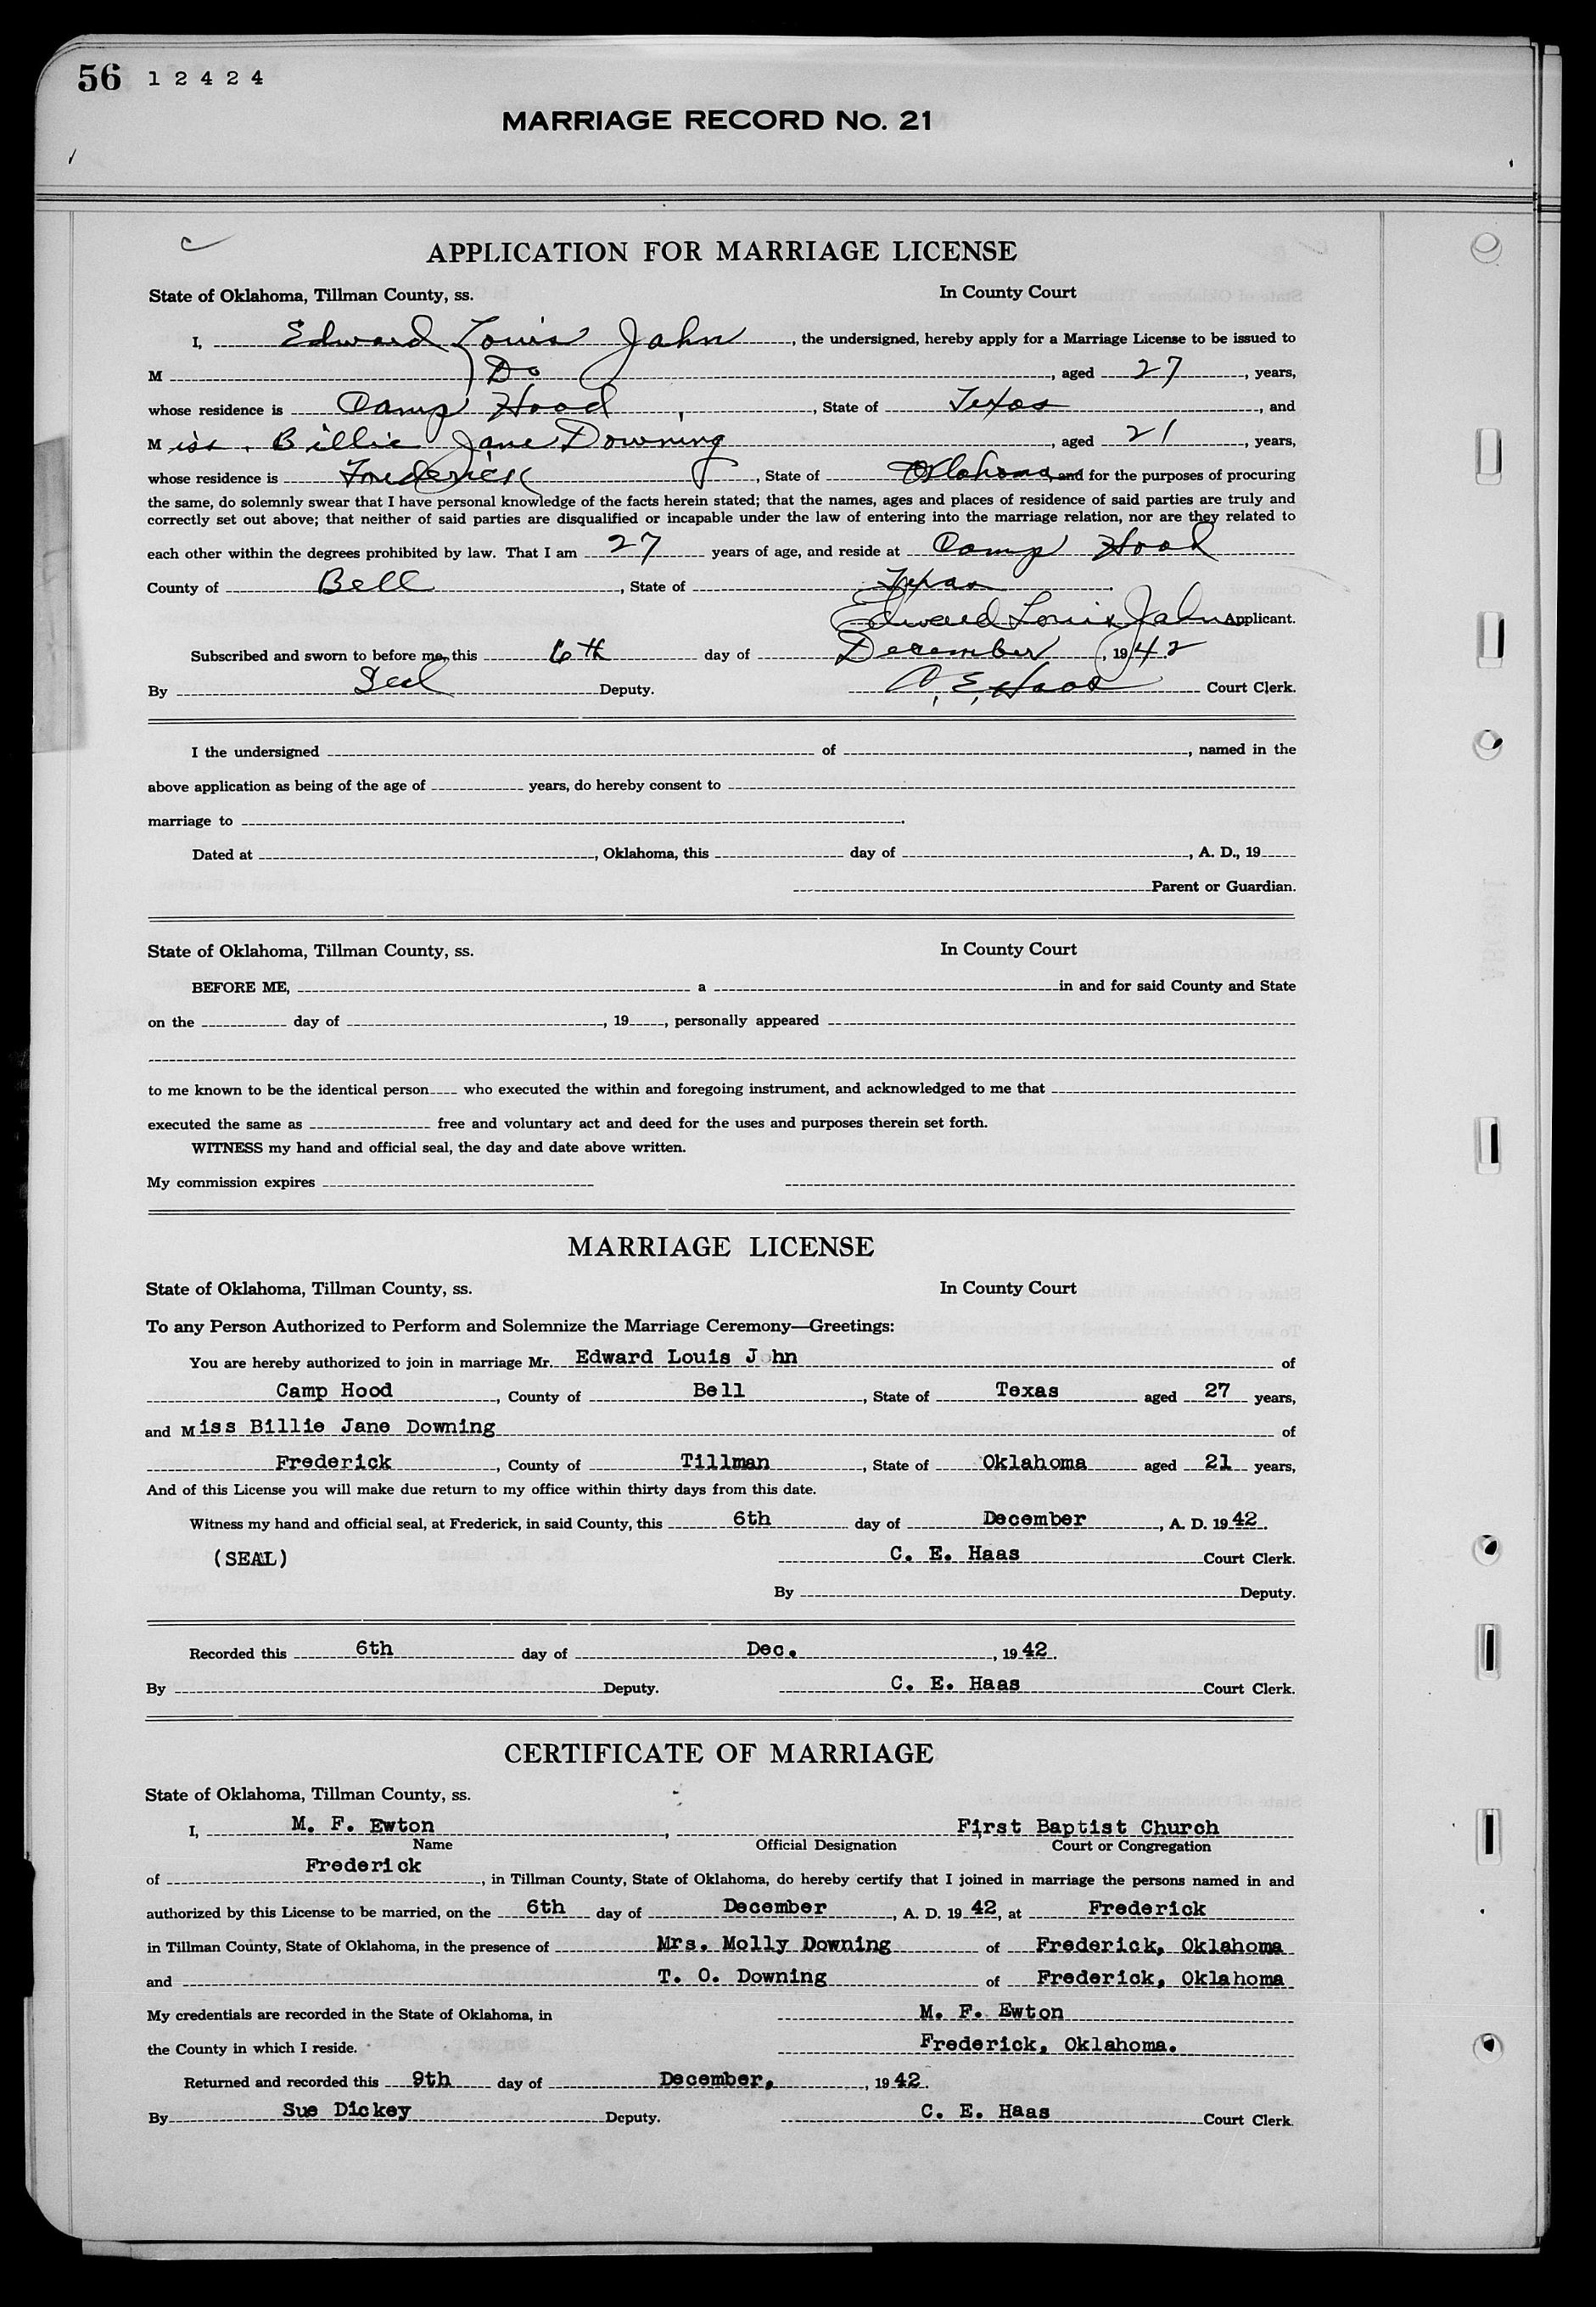 56 12424
MARRIAGE RECORD No. 21
APPLICATION FOR MARRIAGE LICENSE
State of Oklahoma, Tillman County, ss. In County Court
I, Edward Louis Jahn, the undersigned, hereby apply for a Marriage License to be issued to
M Do, aged 27, years,
whose residence is Camp Hood, State of Texas, and
Miss. Billie Jane Downing, aged 21, years,
whose residence is Frederick, State of Oklahoma and for the purposes of procuring
the same, do solemnly swear that I have personal knowledge of the facts herein stated; that the names, ages and places of residence of said parties are truly and
correctly set out above; that neither of said parties are disqualified or incapable under the law of entering into the marriage relation, nor are they related to
each other within the degrees prohibited by law. That I am 27 years of age, and reside at Camp Hood
County of Bell, State of Texas.
Edward Louis Jahn Applicant.
Subscribed and sworn to before me, this 6th day of December, 1942
By Seal Deputy. C. E. Haas Court Clerk.
I the undersigned of, named in the
above application as being of the age of years, do hereby consent to
marriage to.
Dated at, Oklahoma, this day of, A. D., 19
Parent or Guardian.
State of Oklahoma, Tillman County, ss. In County Court
BEFORE ME, a in and for said County and State
on the day of, 19, personally appeared
to me known to be the identical person who executed the within and foregoing instrument, and acknowledged to me that
executed the same as free and voluntary act and deed for the uses and purposes therein set forth.
WITNESS my hand and official seal, the day and date above written.
My commission expires
MARRIAGE LICENSE
State of Oklahoma, Tillman County, ss. In County Court
To any Person Authorized to Perform and Solemnize the Marriage Ceremony—Greetings:
You are hereby authorized to join in marriage Mr. Edward Louis J hn of
Camp Hood, County of Bell, State of Texas aged 27 years,
and Miss Billie Jane Downing of
Frederick, County of Tillman, State of Oklahoma aged 21 years,
And of this License you will make due return to my office within thirty days from this date.
Witness my hand and official seal, at Frederick, in said County, this 6th day of December, A. D. 1942.
(SEAL) C. E. Haas Court Clerk.
By Deputy.
Recorded this 6th day of Dec., 1942.
By Deputy. C. E. Haas Court Clerk.
CERTIFICATE OF MARRIAGE
State of Oklahoma, Tillman County, ss.
I, M. F. Ewton, First Baptist Church
Name Official Designation Court or Congregation
of Frederick, in Tillman County, State of Oklahoma, do hereby certify that I joined in marriage the persons named in and
authorized by this License to be married, on the 6th day of December, A. D. 1942, at Frederick
in Tillman County, State of Oklahoma, in the presence of Mrs. Molly Downing of Frederick, Oklahoma
and T. O. Downing of Frederick, Oklahoma
My credentials are recorded in the State of Oklahoma, in M. F. Ewton
the County in which I reside. Frederick, Oklahoma.
Returned and recorded this 9th day of December, 1942.
By Sue Dickey Deputy. C. E. Haas Court Clerk.